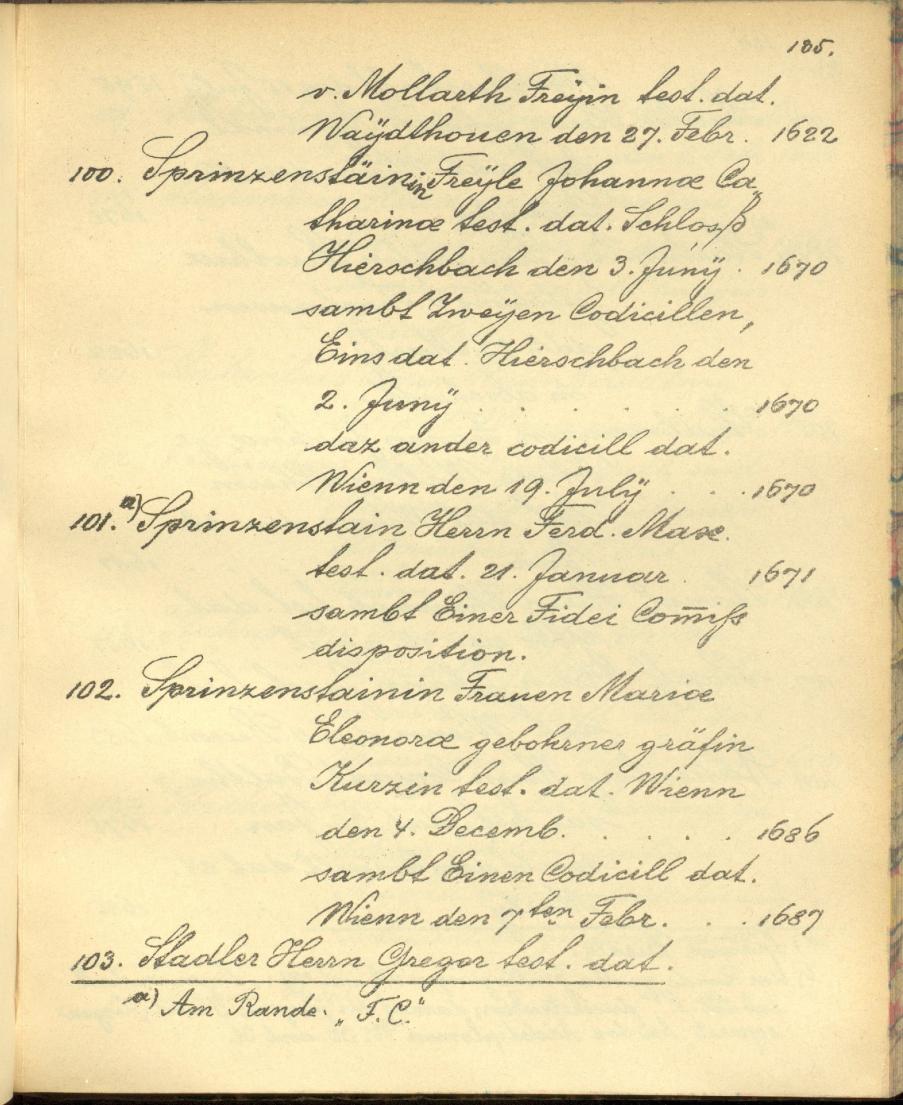 185.
v. Mollarth Freÿin test. dat.
Waÿdthouen den 27. Febr. 1622
100. Sprinzenstäinin Freÿle Johannæ Ca„
tharinæ test. dat. Schloß
Hierschbach den 3. Junÿ . 1670
sambt Zweÿen Codicillen,
Eins dat. Hierschbach den
2. Junÿ . . . . . . 1670
daz ander codicill dat.
Wienn den 19. Julÿ . . . 1670
101. a) Sprinzenstain Herrn Ferd. Max.
test. dat. 21. Januar . 1671
sambt Einer Fidei Com̅iss
disposition.
102. Sprinzenstainin Frauen Mariæ
Eleonoræ gebohrner gräfin
Kurzin test. dat. Wienn
den 4. Decemb. . . . . 1686
sambt Einen Codicill dat.
Wienn den 7ten Febr. . . . 1687
103. Stadler Herrn Gregor test. dat.
a) Am Rande. „F. C."